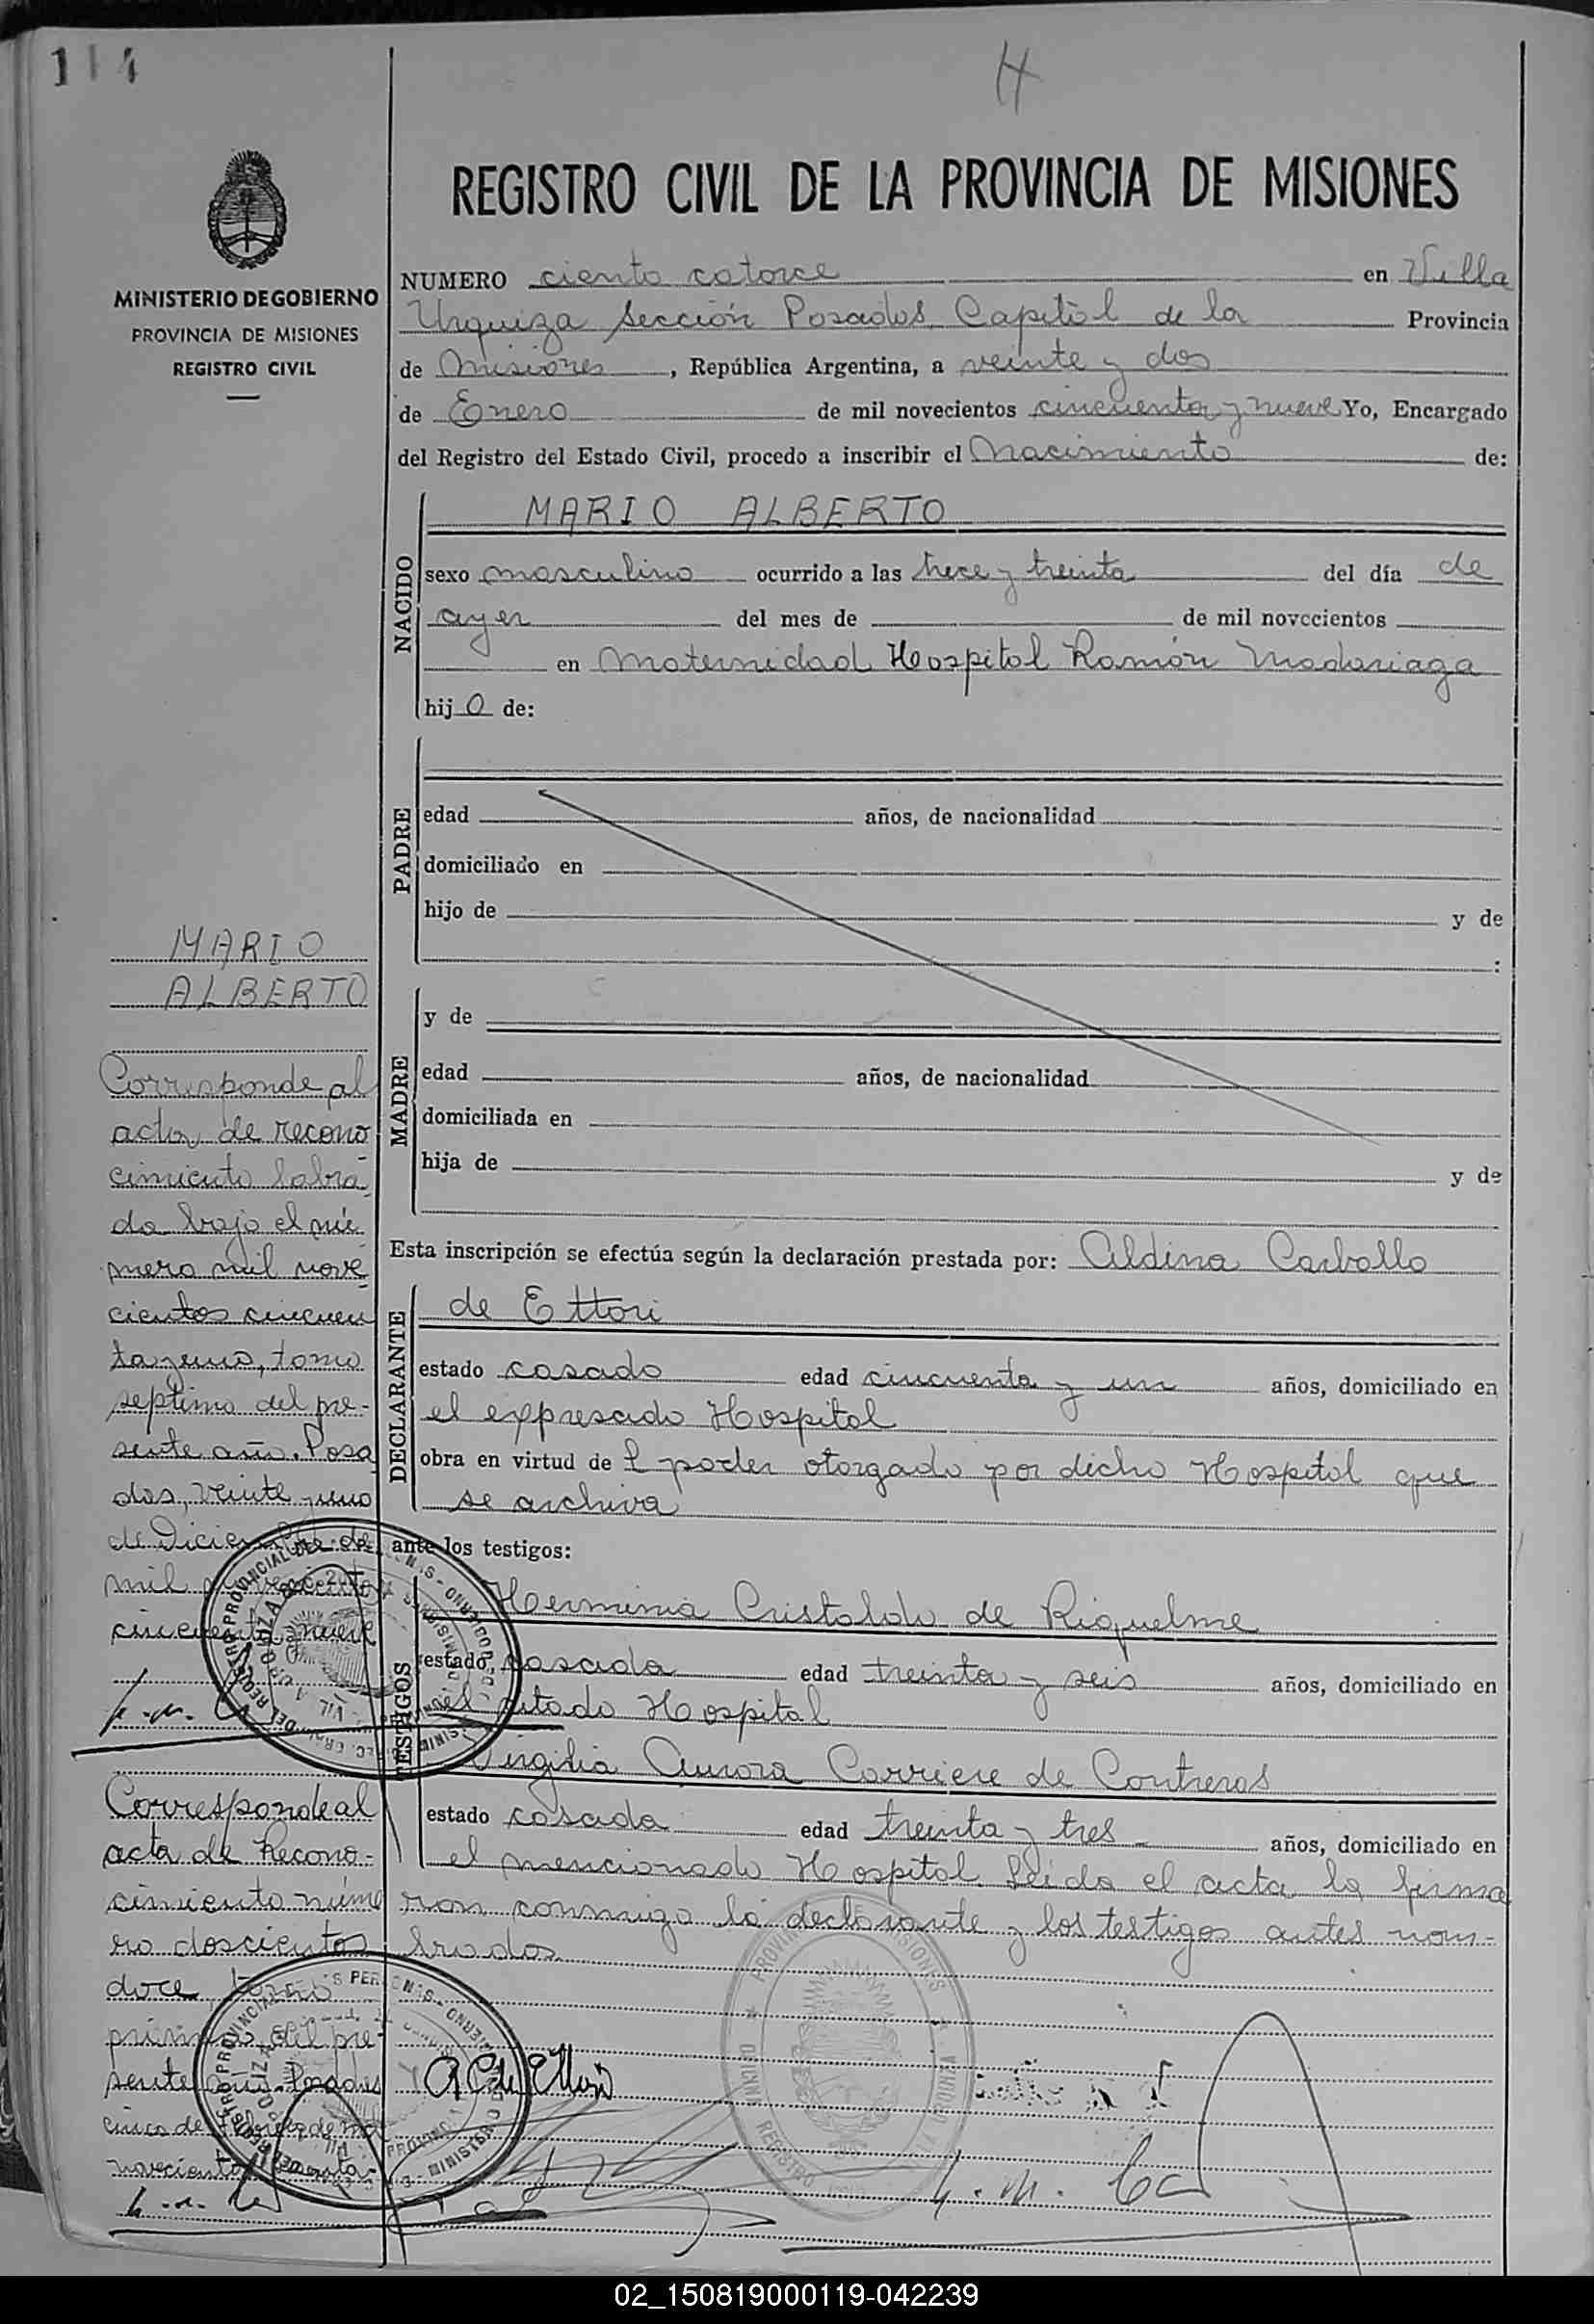 114
H
REGISTRO CIVIL DE LA PROVINCIA DE MISIONES
MINISTERIO DE GOBIERNO
PROVINCIA DE MISIONES
REGISTRO CIVIL
NUMERO ciento catorce en Villa
Urquiza Sección Posadas Capital de la Provincia
de Misiones, República Argentina, a veinte y dos
de Enero de mil novecientos cincuenta y nueve Yo, Encargado
del Registro del Estado Civil, procedo a inscribir el Nacimiento de:
NACIDO
MARIO ALBERTO
sexo masculino ocurrido a las trece y treinta del día de
ayer del mes de de mil novecientos
en Maternidad Hospital Ramón Madariaga
hijo de:
PADRE
edad años, de nacionalidad
domiciliado en
hijo de y de
:
MADRE
y de
edad años, de nacionalidad
domiciliada en
hija de y de
Esta inscripción se efectúa según la declaración prestada por: Aldina Carballo
DECLARANTE
de Ettori
estado casado edad cincuenta y un años, domiciliado en
el expresado Hospital
obra en virtud del poder otorgado por dicho Hospital que
se archiva
ante los testigos:
TESTIGOS
Herminia Cristaldo de Riquelme
estado casada edad treinta y seis años, domiciliado en
el citado Hospital
Virgilia Aurora Carriere de Contreras
estado casada edad treinta y tres años, domiciliado en
el mencionado Hospital. Leída el acta la firma
ron conmigo la declarante y los testigos antes nom-
brados
A C de Ettori
MARIO
ALBERTO
Corresponde al
acta de recono
cimiento labra
da bajo el nú
mero mil nove
cientos cincuen
ta y uno, tomo
septimo del pre-
sente año. Posa
das, veinte y uno
de Diciembre de
mil novecientos
cincuenta y nueve
Corresponde al
acta de Recono-
cimiento núme
ro doscientos
doce, tomo
primero del pre-
sente año. Posadas
cinco de de mil
novecientos
02_150819000119-042239